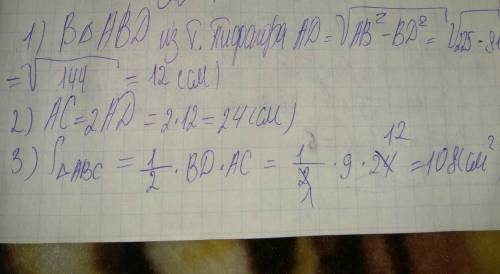 1) В△ABD из т. Пифагора AD=√AB²−BD² = √225−81
=√144 = 12 (см)
2) AC=2AD=2·12=24(см)
3) S△ABC = 1/2 · BD · AC = 1/2 · 9 · 24 = 108(см²
12
1